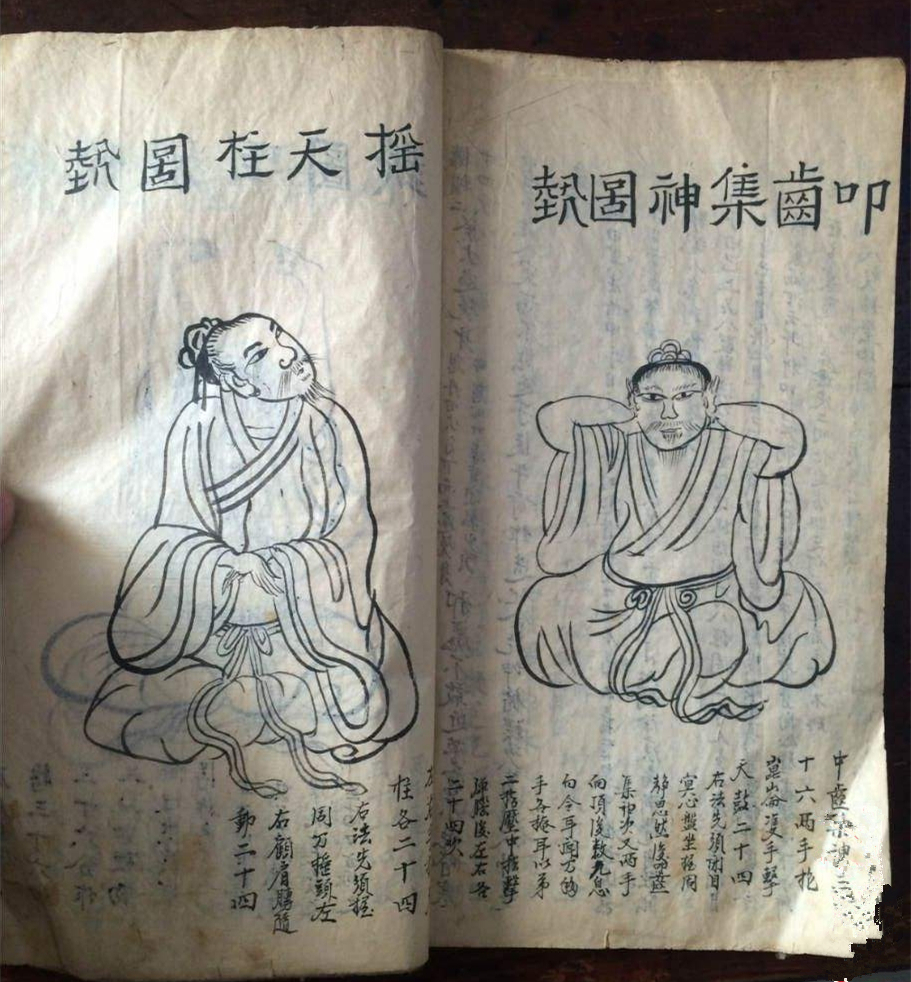 叩齒集神圖勢
叩齒集神三
十六兩手抱
崑崙雙手擊
天鼓二十四
右法先須閉目
冥心盤坐握固
靜思然後叩齒
集神次叉兩手
向項後數九息
勿令耳聞乃移
手各掩耳以第
二指壓中指擊
彈腦後左右各
二十四次
搖天柱圖勢
柱各二十四
右法先須握
固乃搖頭左
右顧肩膊隨
動二十四